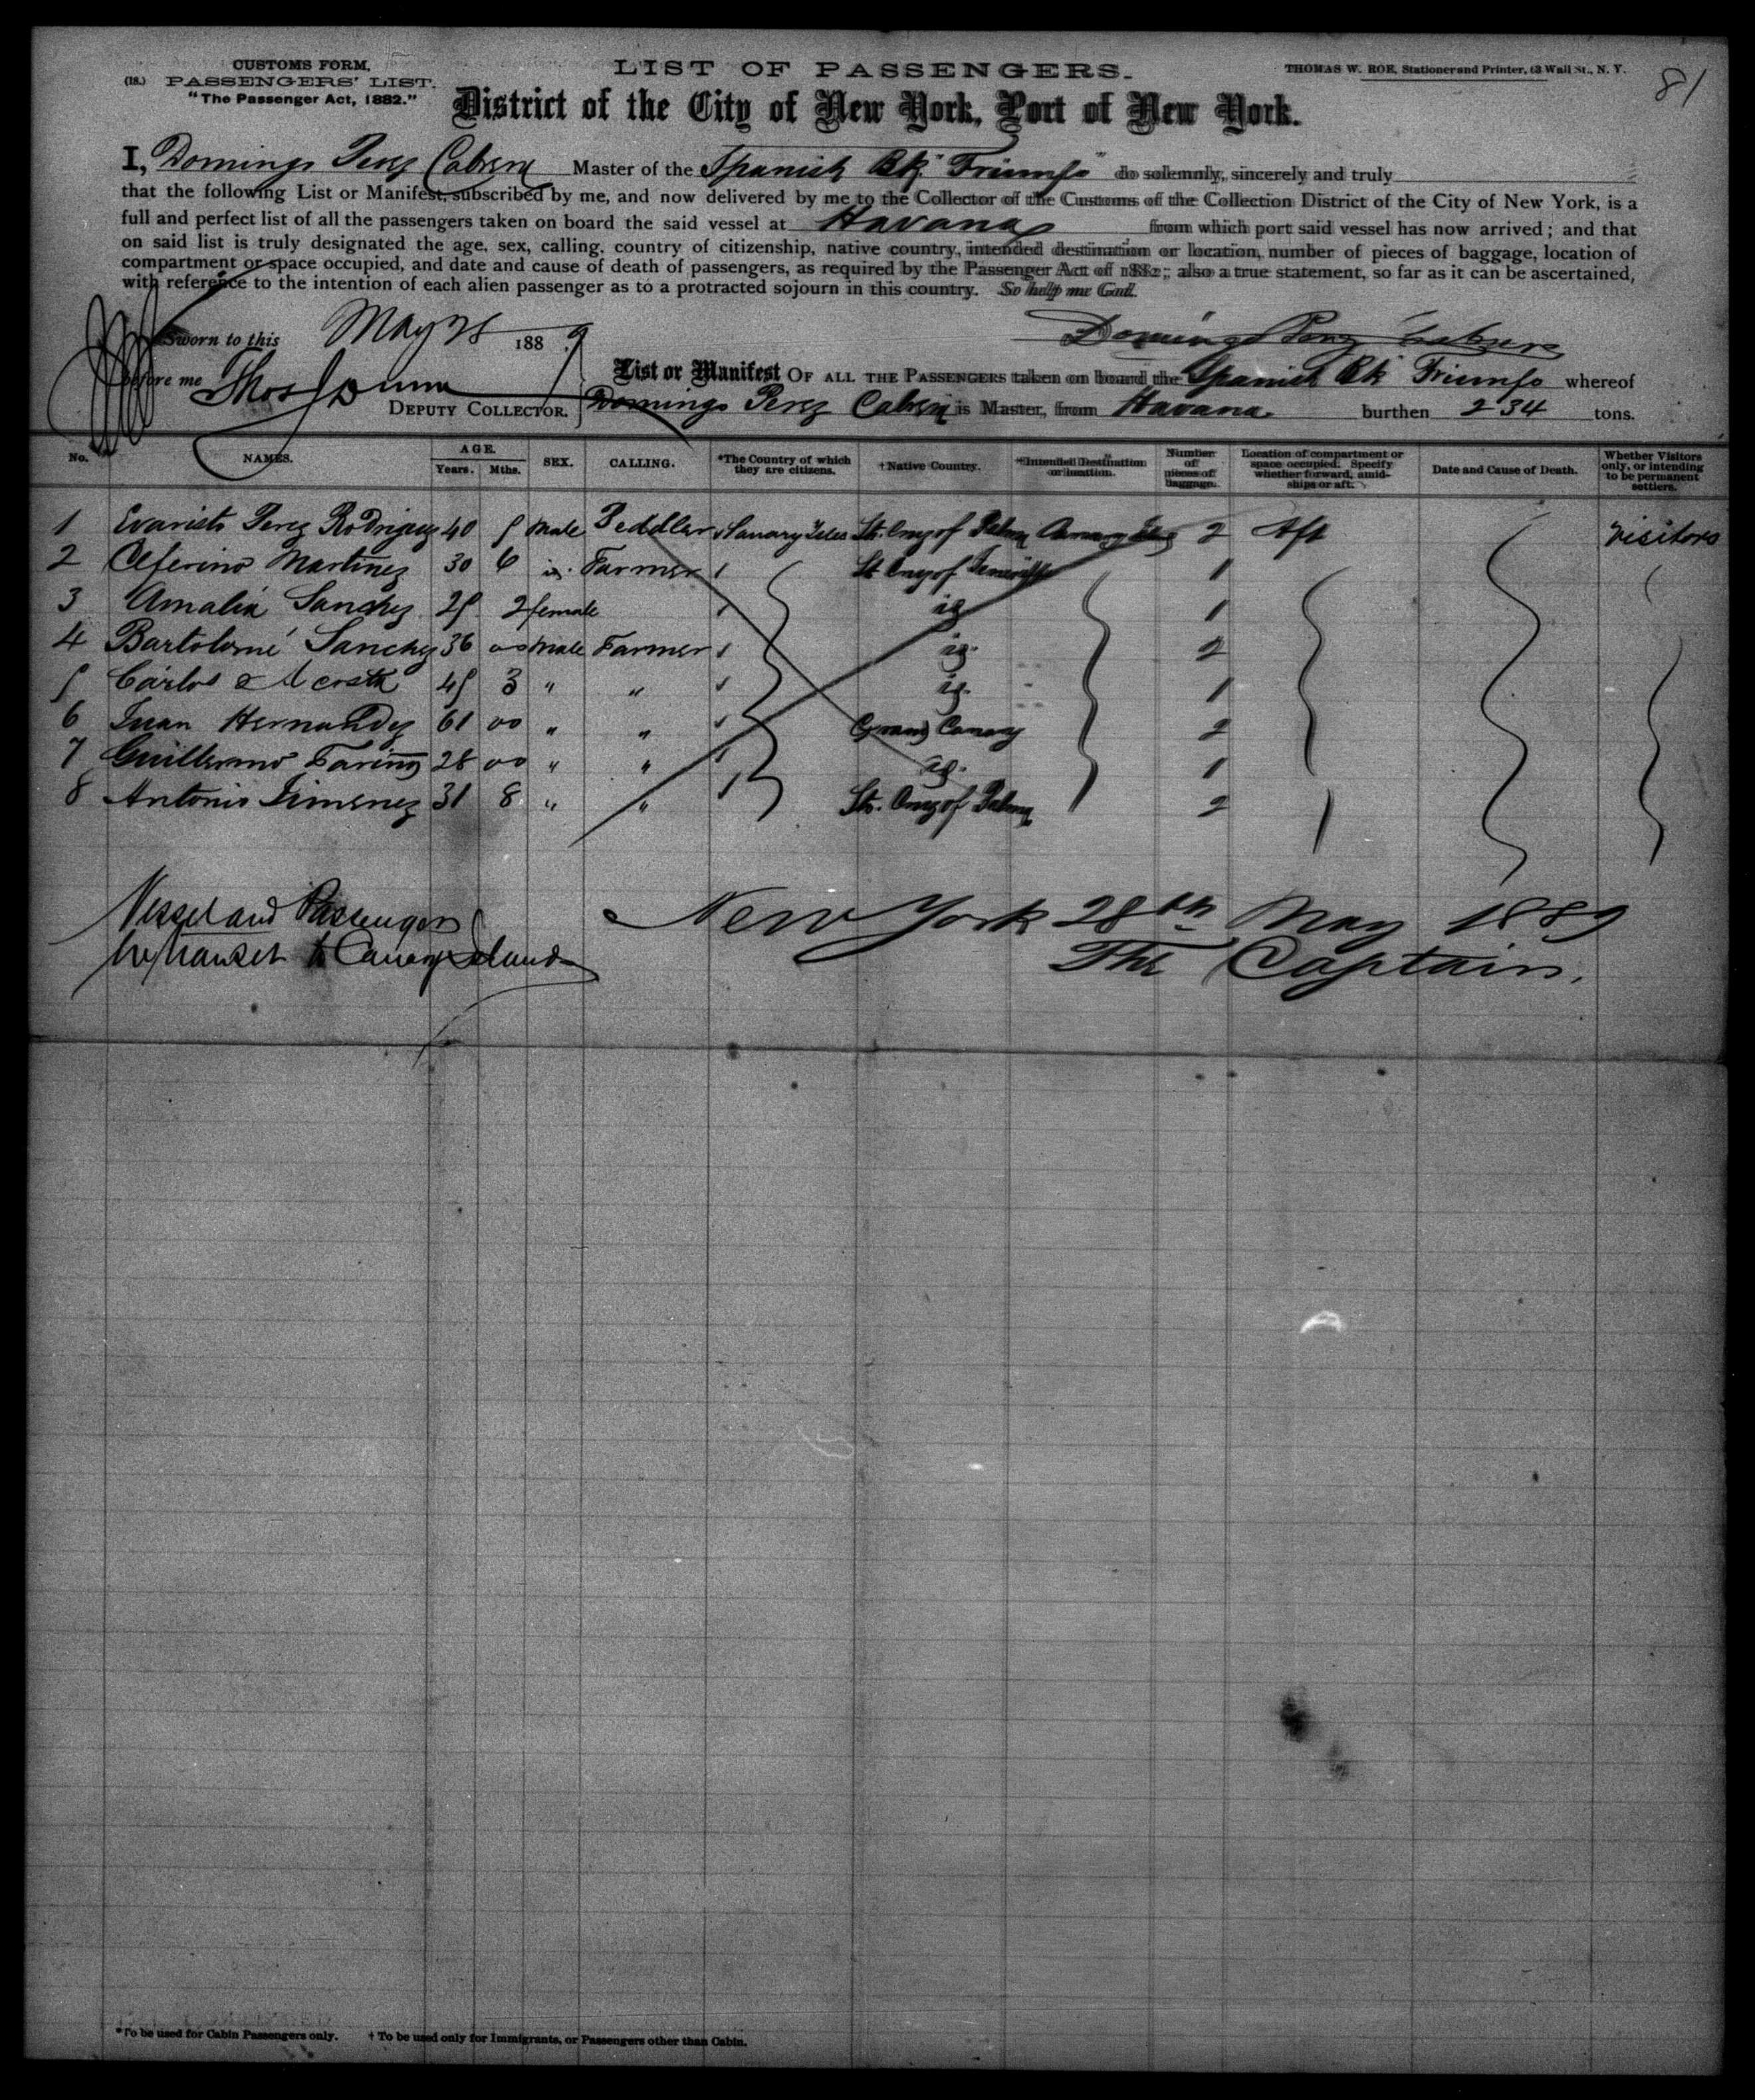 CUSTOMS FORM,
(18.) PASSENGERS' LIST.
"The Passenger Act, 1882."
LIST OF PASSENGERS.
THOMAS W. ROE, Stationer and Printer, 63 Wall St., N. Y.
81
District of the City of New York, Port of New York.
I, Domingo Perez Cabrera Master of the Spanish Bk "Triunfo" do solemnly, sincerely and truly
that the following List or Manifest, subscribed by me, and now delivered by me to the Collector of the Customs of the Collection District of the City of New York, is a
full and perfect list of all the passengers taken on board the said vessel at Havana from which port said vessel has now arrived; and that
on said list is truly designated the age, sex, calling, country of citizenship, native country, intended destination or location, number of pieces of baggage, location of
compartment or space occupied, and date and cause of death of passengers, as required by the Passenger Act of 1882; also a true statement, so far as it can be ascertained,
with reference to the intention of each alien passenger as to a protracted sojourn in this country. So help me God.
Sworn to this May 28 1889
Domingo Perez Cabrera
before me Thos Dunn
DEPUTY COLLECTOR.
List or Manifest OF ALL THE PASSENGERS taken on board the Spanish Bk Triunfo whereof
Domingo Perez Cabrera is Master, from Havana burthen 234 tons.
No. NAMES. AGE. Years. Mths. SEX. CALLING. *The Country of which they are citizens. †Native Country. *Intended Destination or location. Number of pieces of baggage. Location of compartment or space occupied. Specify whether forward, amidships or aft. Date and Cause of Death. Whether Visitors only, or intending to be permanent settlers.
1 Evaristo Perez Rodriguez 40 5 Male Peddler Canary Isles St. Cruz of Palma Canary Isles 2 Aft Visitors
2 Ceferino Martinez 30 6 id. Farmer St. Cruz of Teneriffe 1
3 Amalia Sanchez 25 2 female id. 1
4 Bartolomé Sanchez 36 00 Male Farmer id. 2
5 Cárlos Acosta 45 3 " " id. 1
6 Juan Hernandez 61 00 " " Grand Canary 2
7 Guillermo Farina 28 00 " " id. 1
8 Antonio Jimenez 31 8 " " St. Cruz of Palma 2
Vessel and Passengers
in transit to Canary Islands
New York 28th May 1889
The Captain.
*To be used for Cabin Passengers only. † To be used only for Immigrants, or Passengers other than Cabin.